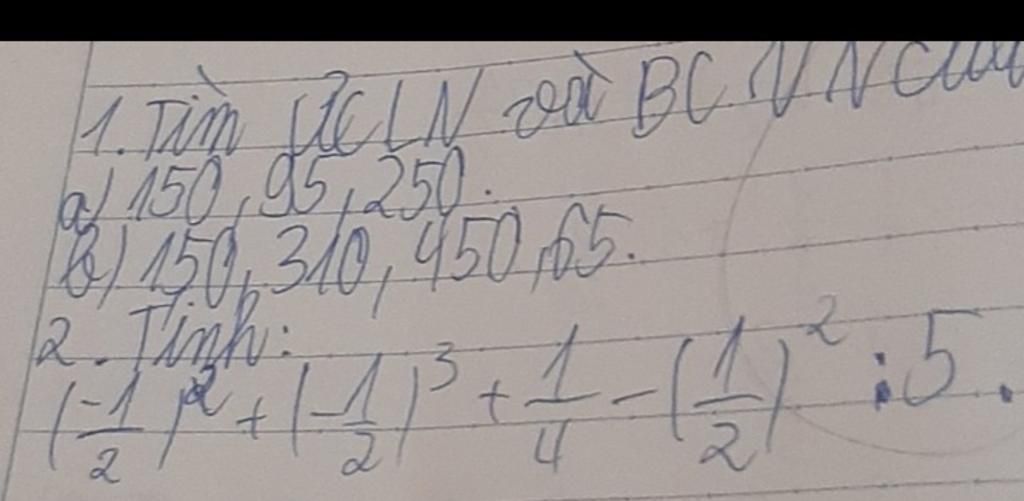 1. Tìm ƯCLN và BCNN của
a) 150, 95, 250.
b) 150, 310, 450, 65.
2. Tính:
(-1/2)² + (-1/2)³ + 1/4 - (1/2)² : 5.